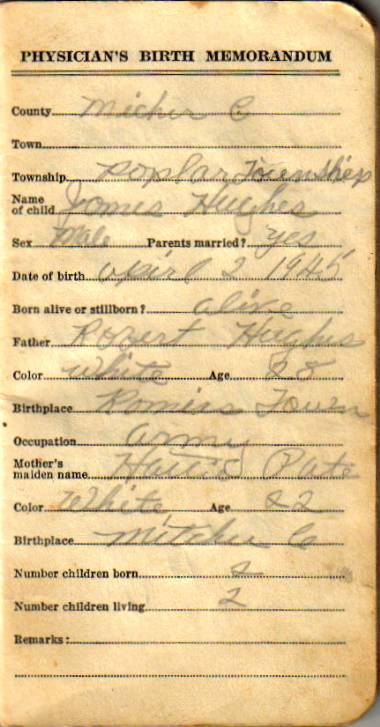 PHYSICIAN'S BIRTH MEMORANDUM
County Micher C
Town
Township Poplar Township
Name of child James Hughes
Sex Male Parents married? yes
Date of birth April 2 1945
Born alive or stillborn? alive
Father Robert Hughes
Color White Age 28
Birthplace Town
Occupation army
Mother's maiden name Pate
Color White Age 22
Birthplace C
Number children born 2
Number children living 2
Remarks: